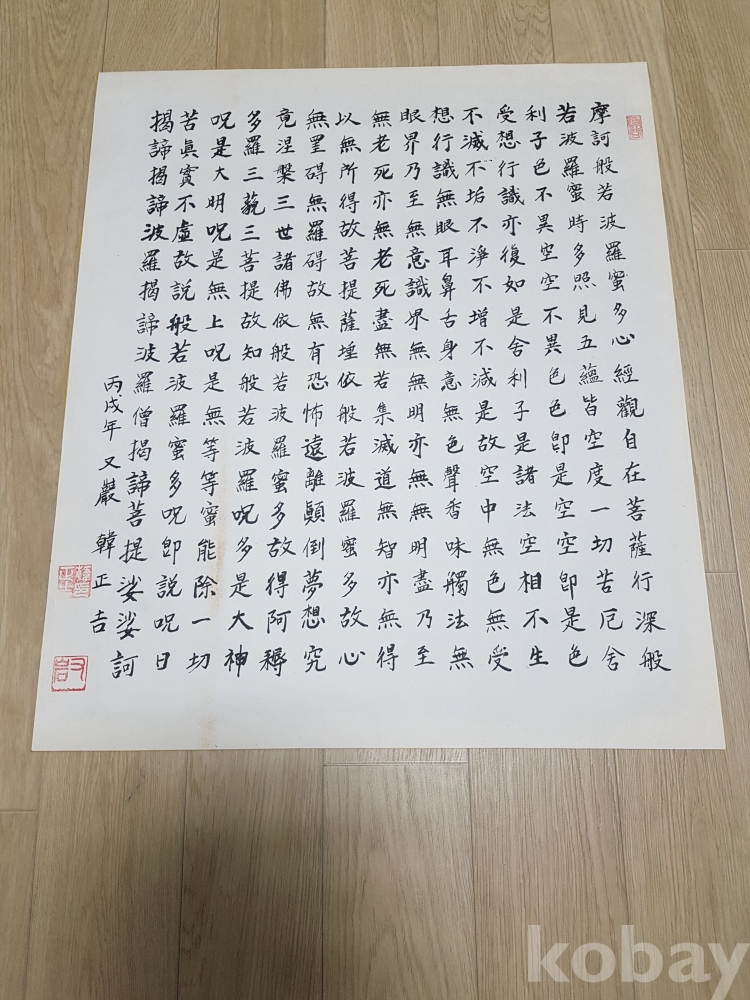 摩訶般若波羅蜜多心經觀自在菩薩行深般
若波羅蜜時多照見五蘊皆空度一切苦厄舍
利子色不異空空不異色色卽是空空卽是色
受想行識亦復如是舍利子是諸法空相不生
不滅不垢不淨不增不減是故空中無色無受
想行識無眼耳鼻舌身意無色聲香味觸法無
眼界乃至無意識界無無明亦無無明盡乃至
無老死亦無老死盡無若集滅道無智亦無得
以無所得故菩提薩埵依般若波羅蜜多故心
無罣碍無羅碍故無有恐怖遠離顚倒夢想究
竟涅槃三世諸佛依般若波羅蜜多故得阿耨
多羅三藐三菩提故知般若波羅呪多是大神
呪是大明呪是無上呪是無等等蜜能除一切
苦眞實不虛故說般若波羅蜜多呪卽說呪曰
揭諦揭諦波羅揭諦波羅僧揭諦菩提娑娑訶
丙戌年 又嚴 韓正吉
kobay